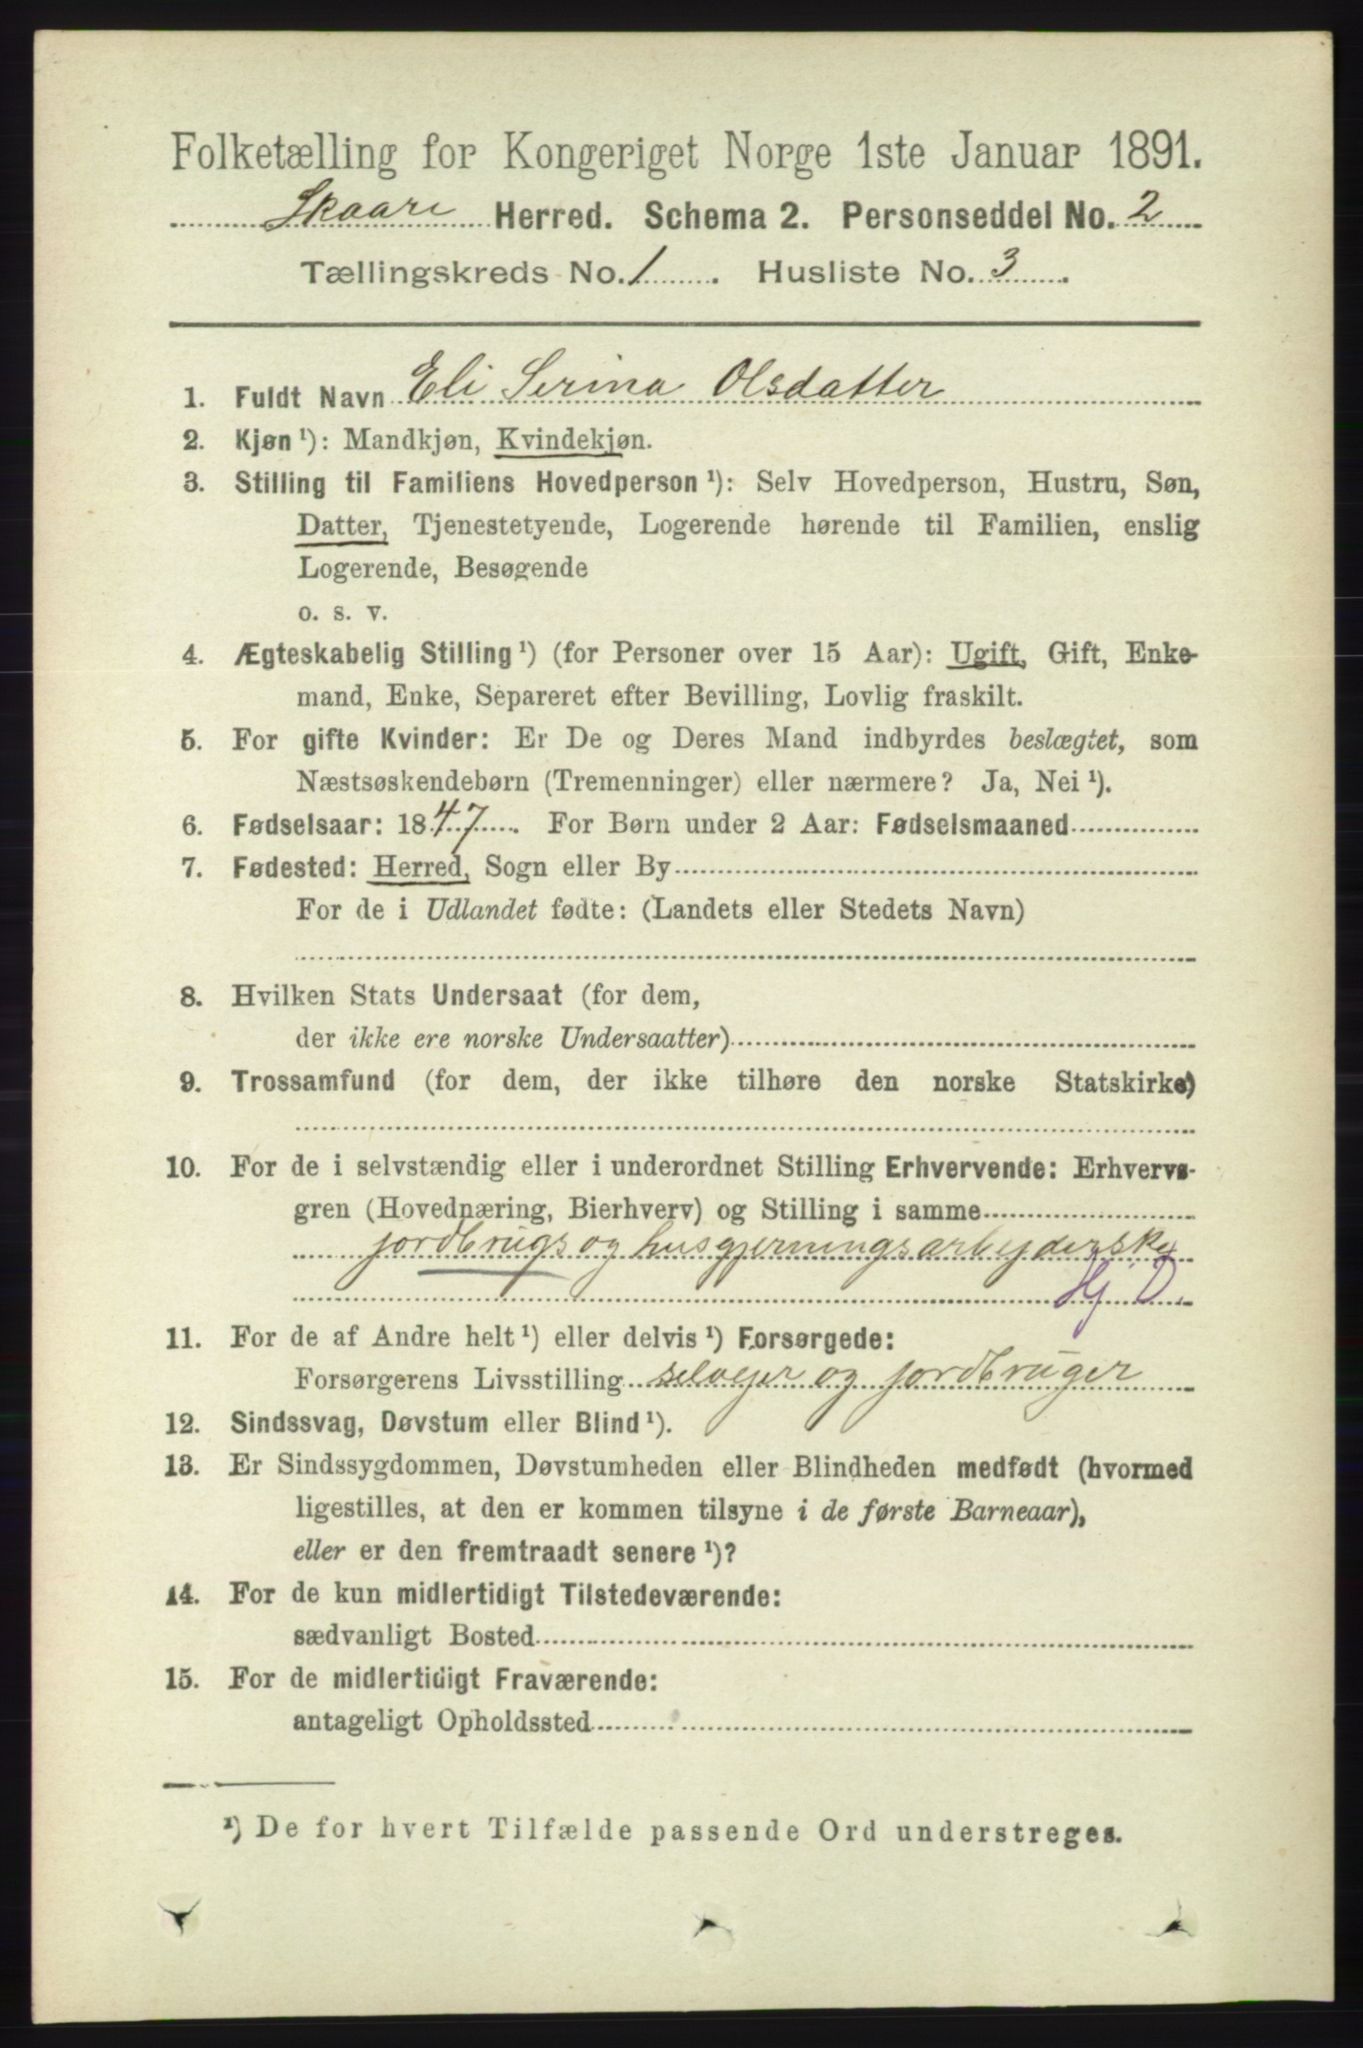 Folketælling for Kongeriget Norge 1ste Januar 1891.
Skaare Herred. Schema 2. Personseddel No. 2
Tællingskreds No. 1. Husliste No. 3.
1. Fuldt Navn Eli Serina Olsdatter
2. Kjøn ¹): Mandkjøn, Kvindekjøn.
3. Stilling til Familiens Hovedperson ¹): Selv Hovedperson, Hustru, Søn,
Datter, Tjenestetyende, Logerende hørende til Familien, enslig
Logerende, Besøgende
o. s. v.
4. Ægteskabelig Stilling ¹) (for Personer over 15 Aar): Ugift, Gift, Enke-
mand, Enke, Separeret efter Bevilling, Lovlig fraskilt.
5. For gifte Kvinder: Er De og Deres Mand indbyrdes beslægtet, som
Næstsøskendebørn (Tremenninger) eller nærmere? Ja, Nei ¹).
6. Fødselsaar: 1847. For Børn under 2 Aar: Fødselsmaaned
7. Fødested: Herred, Sogn eller By
For de i Udlandet fødte: (Landets eller Stedets Navn)
8. Hvilken Stats Undersaat (for dem,
der ikke ere norske Undersaatter)
9. Trossamfund (for dem, der ikke tilhøre den norske Statskirke)
10. For de i selvstændig eller i underordnet Stilling Erhvervende: Erhvervs-
gren (Hovednæring, Bierhverv) og Stilling i samme
jordbrugs og husgjerningsarbejderske
Hj D.
11. For de af Andre helt ¹) eller delvis ¹) Forsørgede:
Forsørgerens Livsstilling selvejer og jordbruger
12. Sindssvag, Døvstum eller Blind ¹).
13. Er Sindssygdommen, Døvstumheden eller Blindheden medfødt (hvormed
ligestilles, at den er kommen tilsyne i de første Barneaar),
eller er den fremtraadt senere ¹)?
14. For de kun midlertidigt Tilstedeværende:
sædvanligt Bosted
15. For de midlertidigt Fraværende:
antageligt Opholdssted
¹) De for hvert Tilfælde passende Ord understreges.